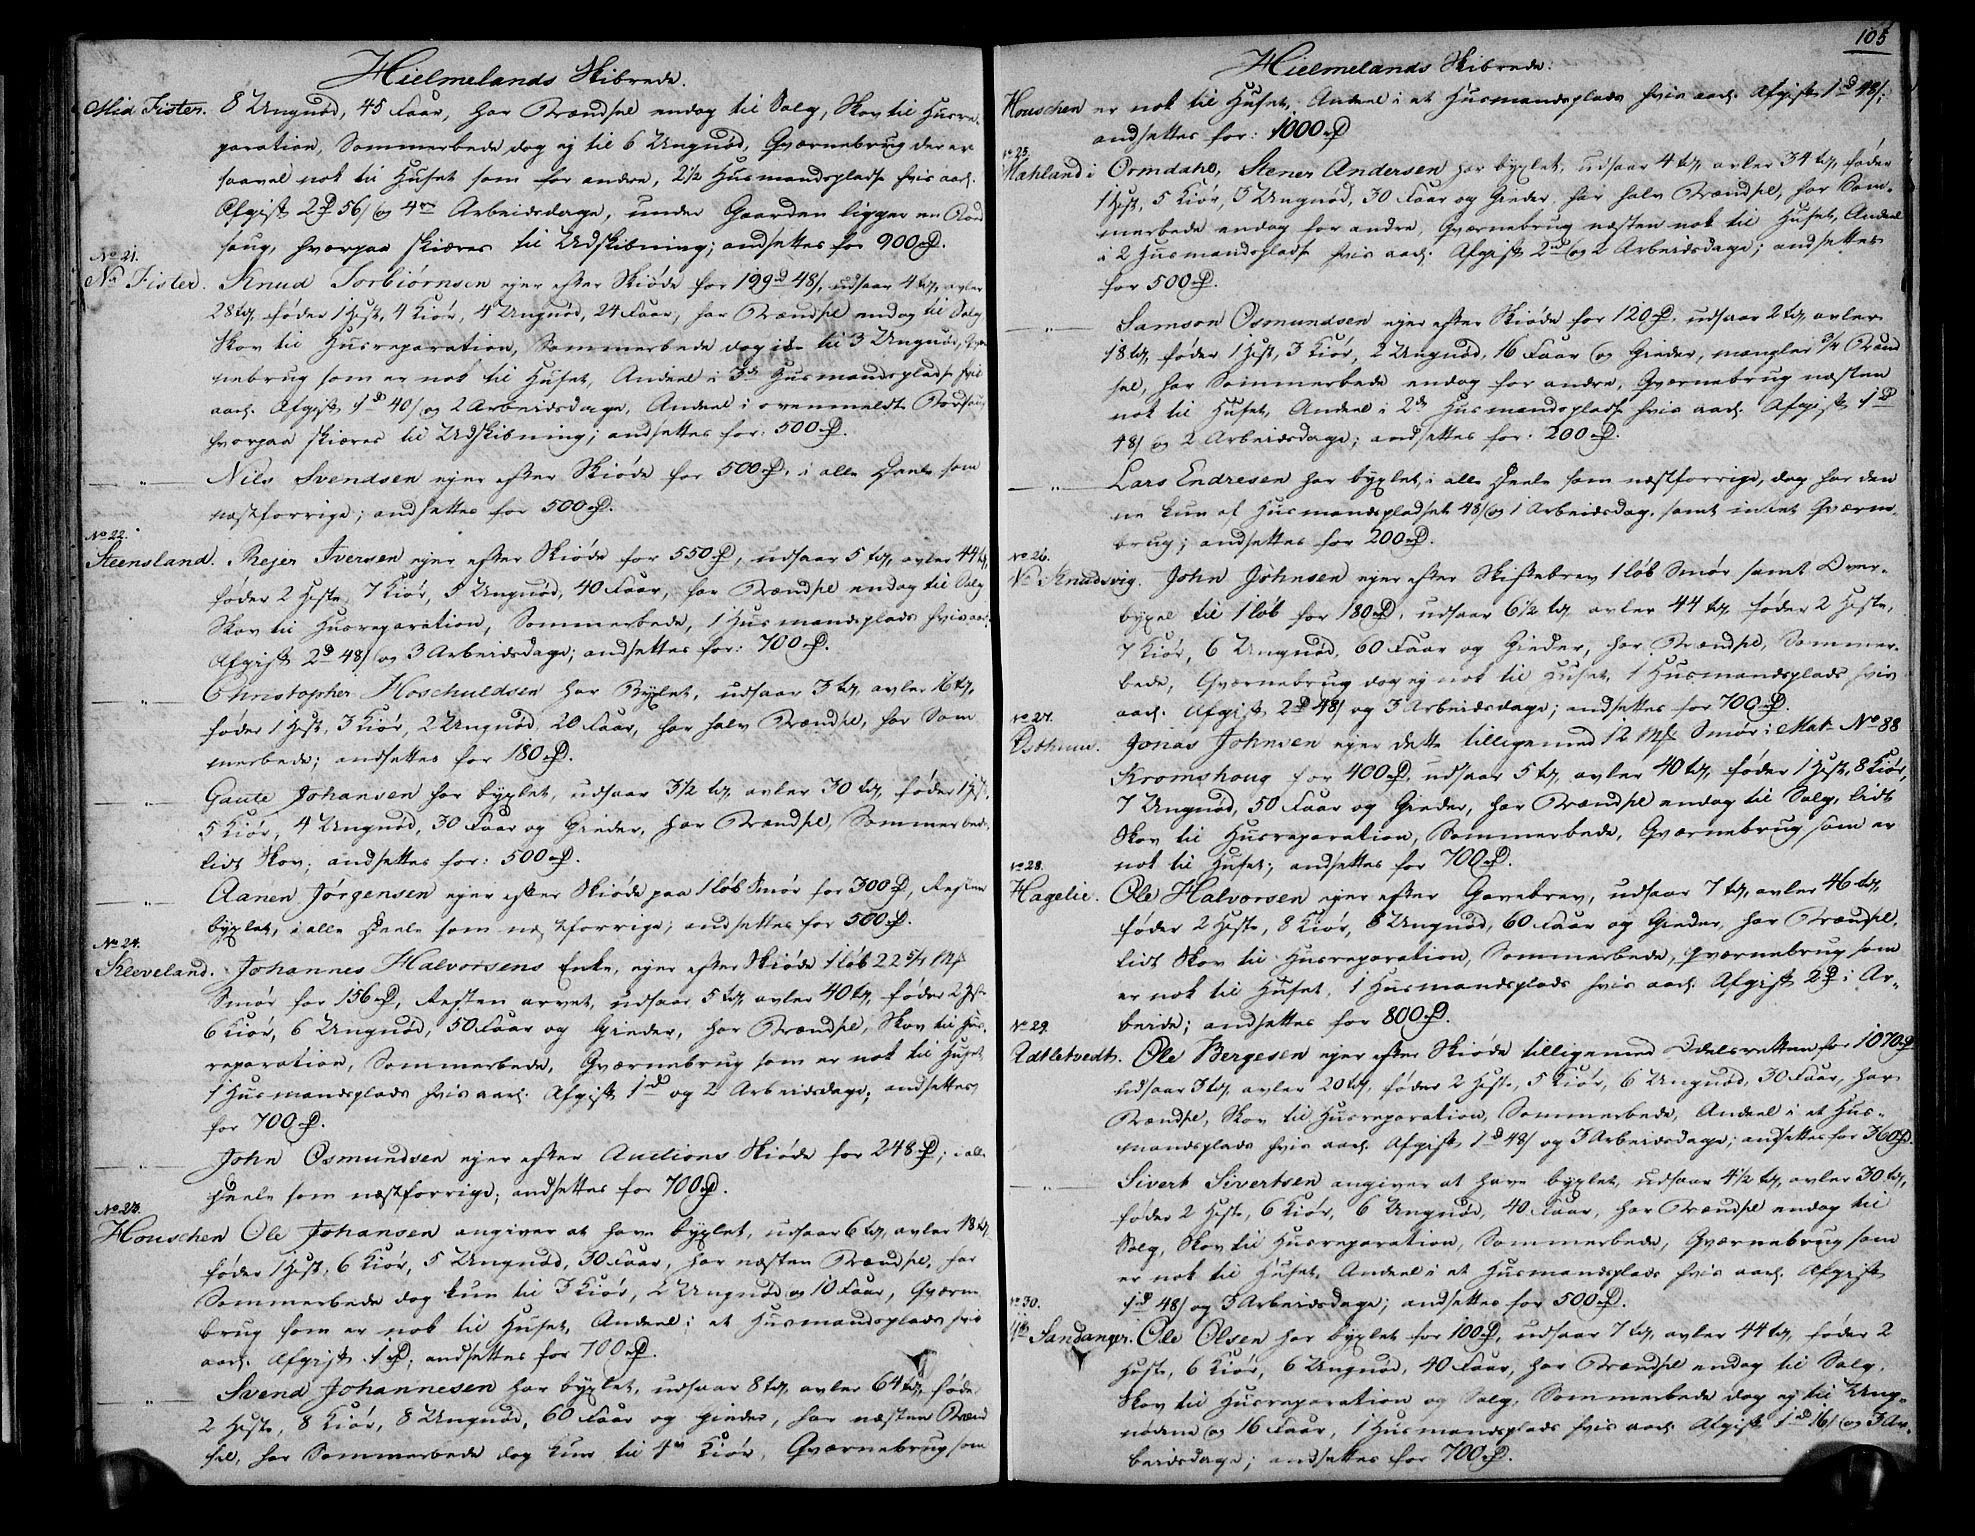 Hielmelands Skibrede.
Mid Fister. 8 Ungnød, 45 Faar, har Brændsel endog til Salg, Skov til Husre-
paration, Sommerbede dog ej til 6 Ungnød, Qværnebrug der er
saavel nok til Huset som for andre, 2½ Husmandsplads hvis aarl.
Afgift 2 56/ og 4re Arbeidsdage, under Gaarden ligger en Bord
saug, hvorpaa skiæres til Udskibning; andsettes for 900
No 21.
Nr Fister. Knud Torbiørnsen ejer efter Skiøde for 199 48/, udsaar 4 td, avler
28 td, føder 1 Hest, 4 Kiør, 4 Ungnød, 24 Faar, har Brændsel endog til Salg
Skov til Husreparation, Sommerbede dog ik til 3 Ungnød, Qvær
nebrug som er nok til Huset, Andeel i 3de Husmandsplads hvis
aarl. Afgift 1 40/ og 2 Arbeidsdage, Andeel i ovenmeldte Bordsaug
hvorpaa skiæres til Udskibning; andsettes for: 500
— „ — Nils Svendsen ejer efter Skiøde for 500, i alle Deele som
næstforrige; andsettes for 500.
No 22.
Steensland. Rejer Iversen ejer efter Skiøde for 550, udsaar 5 td, avler 44 td,
føder 2 Heste, 7 Kiør, 5 Ungnød, 40 Faar, har Brændsel endog til Salg
Skov til Husreparation, Sommerbede, 1 Husmandsplads hvis aarl.
Afgift 2 48/ og 3 Arbeidsdage; andsettes for: 700.
— „ — Christopher Hoschuldsen har Byxlet, udsaar 3 td, avler 16 td,
føder 1 Hest, 3 Kiør, 2 Ungnød, 20 Faar, har halv Brændsel, har Som
merbede; andsettes for 180.
— „ — Gaute Johansen har byxlet, udsaar 3½ td, avler 30 td, føder 1 Hest,
5 Kiør, 4 Ungnød, 30 Faar og Gieder, har Brændsel, Sommerbede,
lidt Skov; andsettes for: 500.
— „ — Aanen Jørgensen ejer efter Skiøde paa 1 løb Smør for 300, Resten
byxlet, i alle Deele som næstforrige; andsettes for 500.
No 24.
Kleveland. Johannes Halvorsens Enke, ejer efter Skiøde 1 løb 22 5/7
Smør for 156, Resten arvet, udsaar 5 td, avler 40 td, føder 2 Heste
6 Kiør, 6 Ungnød, 50 Faar og Gieder, har Brændsel, Skov til Hus-
reparation, Sommerbede, Qværnebrug som er nok til Huset
1 Husmandsplads hvis aarl. Afgift 1 og 2 Arbeidsdage; andsettes
for 700.
— „ — John Osmundsen ejer efter Auctions Skiøde for 248; i alle
Deele som næstforrige; andsettes for 700.
No 23.
Houschen Ole Johansen angiver at have byxlet, udsaar 6 td, avler 48 td
føder 1 Hest, 6 Kiør, 5 Ungnød, 30 Faar, har næsten Brændsel, har
Sommerbede dog kun til 3 Kiør, 2 Ungnød og 10 Faar, Qværn
brug som er nok til Huset, Andeel i et Husmandsplads hvis
aarl. Afgift 1; andsettes for 700.
— „ — Svend Johannesen har byxlet, udsaar 8 td, avler 64 td, føder
2 Heste, 8 Kiør, 8 Ungnød, 60 Faar og gieder, har næsten Brænd
sel, har Sommerbede dog kun til 4re Kiør, Qværnebrug som
105
Hielmelands Skibrede:
Houschen er nok til Huset, Andeel i et Husmandsplads hvis aarl. Afgift 1 48/;
andsettes for: 1000
No 25.
Mahland i Ormdahl, Stener Andersen har byxlet, udsaar 4 td, avler 34 td, føder
1 Hest, 5 Kiør, 3 Ungnød, 30 Faar og Gieder, har halv Brændsel, har Som-
merbede endog for andre, Qværnebrug næsten nok til Huset, Andeel
i 2 Husmandsplads hvis aarl. Afgift 2 og 2 Arbeidsdage; andsettes
for 500.
— „ — Samson Osmundsen ejer efter Skiøde for 120, udsaar 2 td, avler
18 td, føder 1 Hest, 3 Kiør, 2 Ungnød, 16 Faar og Gieder, mangler ¾ Brænd
sel, har Sommerbede endog for andre, Qværnebrug næsten
nok til Huset, Andeel i 2de Husmandsplads hvis aarl. Afgift 1
48/ og 2 Arbeidsdage; andsettes for: 200.
— „ — Lars Endresen har byxlet, i alle Deele som næstforrige, dog har den
ne kun af Husmandspladset 48/ og 1 Arbeidsdag, samt intet Qværne-
brug; andsettes for 200.
No 26.
Nr Knudsvig. John Johnsen ejer efter Skiftebrev 1 løb Smør samt Over-
byxel til 1 løb for 180, udsaar 6½ td, avler 44 td, føder 2 Heste,
7 Kiør, 6 Ungnød, 60 Faar og Gieder, har Brændsel, Sommer-
bede, Qværnebrug dog ej nok til Huset, 1 Husmandsplads hvis
aarl. Afgift 2 48/ og 3 Arbeidsdage; andsettes for 700.
No 27.
Østhuus. Jonas Johnsen ejer dette tilligemed 12 Smør i Mat: No 88
Kromshoug for 400, udsaar 5 td, avler 40 td, føder 1 Hest, 8 Kiør,
7 Ungnød, 50 Faar og Gieder, har Brændsel endog til Salg, lidt
Skov til Husreparation, Sommerbede, Qværnebrug som er
nok til Huset; andsettes for 700.
No 28.
Hagelie. Ole Halvorsen ejer efter Gavebrev, udsaar 7 td, avler 46 td,
føder 2 Heste, 8 Kiør, 8 Ungnød, 60 Faar og Gieder, har Brændsel,
lidt Skov til Husreparation, Sommerbede, qværnebrug som
er nok til Huset, 1 Husmandsplads hvis aarl. Afgift 2 i Ar-
beide; andsettes for 800.
No 29.
Adtletvedt. Ole Bergesen ejer efter Skiøde tilligemed Odelsretten for 1070
udsaar 3 td, avler 20 td, føder 2 Heste, 5 Kiør, 6 Ungnød, 30 Faar, har
Brændsel, Skov til Husreparation, Sommerbede, Andeel i et Hus-
mandsplads hvis aarl. Afgift 1 48/ og 3 Arbeidsdage; andsettes for 360.
— „ — Sivert Sivertsen angiver at have byxlet, udsaar 4½ td, avler 30 td,
føder 2 Heste, 6 Kiør, 6 Ungnød, 40 Faar, har Brændsel endog til
Salg, Skov til Husreparation, Sommerbede, Qværnebrug som
er nok til Huset, Andeel i et Husmandsplads hvis aarl. Afgift
1 48/ og 3 Arbeidsdage; andsettes for 500.
No 30.
Sandanger. Ole Olsen har byxlet for 100, udsaar 7 td, avler 44 td, føder 2
Heste, 6 Kiør, 6 Ungnød, 40 Faar, har Brændsel endog til Salg,
Skov til Husreparation og Salg, Sommerbede dog ej til Ung-
nødene og 16 Faar, 1 Husmandsplads hvis aarl. Afgift 1 16/ og 3 Ar-
beidsdage; andsettes for 700.